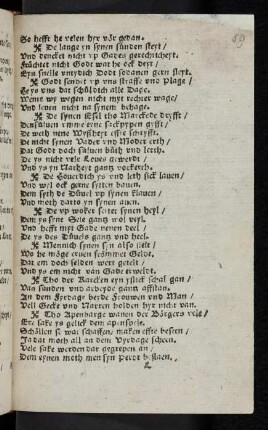 So hefft he velen hyr vör gedan.
De lange yn synen sünden steyt /
Vnd dencket nicht vp Gades gerechticheyt.
Früchtet nicht Godt wat he ock deyt /
Eyn snelle vnrydich Dodt sodanen gern sleyt.
Godt sendet vp vns straffe vnd Plage /
Secht vns dat schüldich alle Dage.
Wente wy wegen nicht myt rechter wage /
Vnd leuen nicht na synem behage.
De synen Esel tho Marckede dryfft /
De nicht synen Vader vnd Moder erth /
Wat Godt doch süluen büth vnd lerth.
De ys nicht vele Loues gewerdt /
Vnd ys yn Narheyt gantz vorkerth.
De Houerdich ys vnd leth sick lauen /
Vnd wyl ock gerne sitten bauen.
Dem syth de Düuel vp synen
Vnd moth darto yn synen auen.
De vp woker settet synen
Dem ys syne Sele gantz wol
Vnd hefft myt Gade neuen deel /
De ys des Düuels gantz vnd heel.
Mennich synen syn also
Wo he möge eruen frömmet Geldt.
Dat em doch selden wert getelt /
Vnd ys em nicht van Gade erwelt.
Tho der Karcken eyn yslick schal gan /
Van sunden vnd arbeyde gantz affstan.
An dem Fyrdage beyde Frouwen vnd Man /
Vele Geck vnd Narren holden hyr nicht van.
Tho Apenbarge wanen der Börgers vele /
Ere sake ys gelick dem apenspele.
Schölen se wat schaffen / maken
Ja dat moth all an dem Vyrdage scheen.
Vele sake werden dar gegrepen an /
Dem eynen moth men syn Perdt beslaen.
59